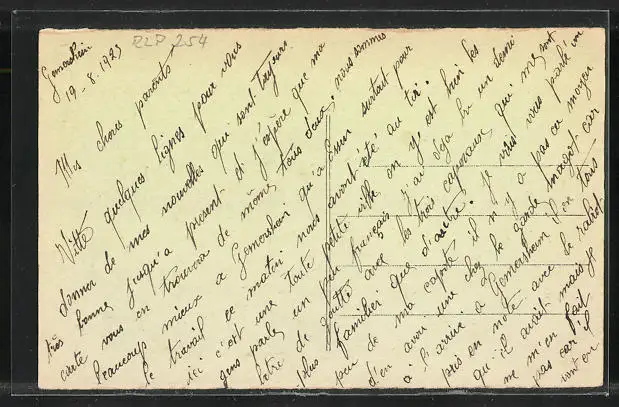 Germersheim
19-8-1923
RLP 254
Mes chères parents
Vitte quelques lignes pour vous
donner de mes nouvelles qui sont toujours
très bonne jusqu'a présent et j'espère que ma
carte vous en trouvera de même tous deux, nous sommes
beaucoup mieux a Germersheim qu'a surtout pour
le travail ce matin nous avont été au tir.
ici c'est une toute petite ville on y est bien les
gens parle un peu français j'ai deja bu un demi
litre de goutte avec les trois caporaux qui me sont
plus familier que d'autre. Je vais vous parlé un
peu de ma capote il n'y a pas eu moyen
d'en avoir une chez le garde magot car
à l'arrivé a Germersheim il on tous
pris en note avec le rabiot
qu'il avait mais je
ne m'en fait
pas car il
vont en